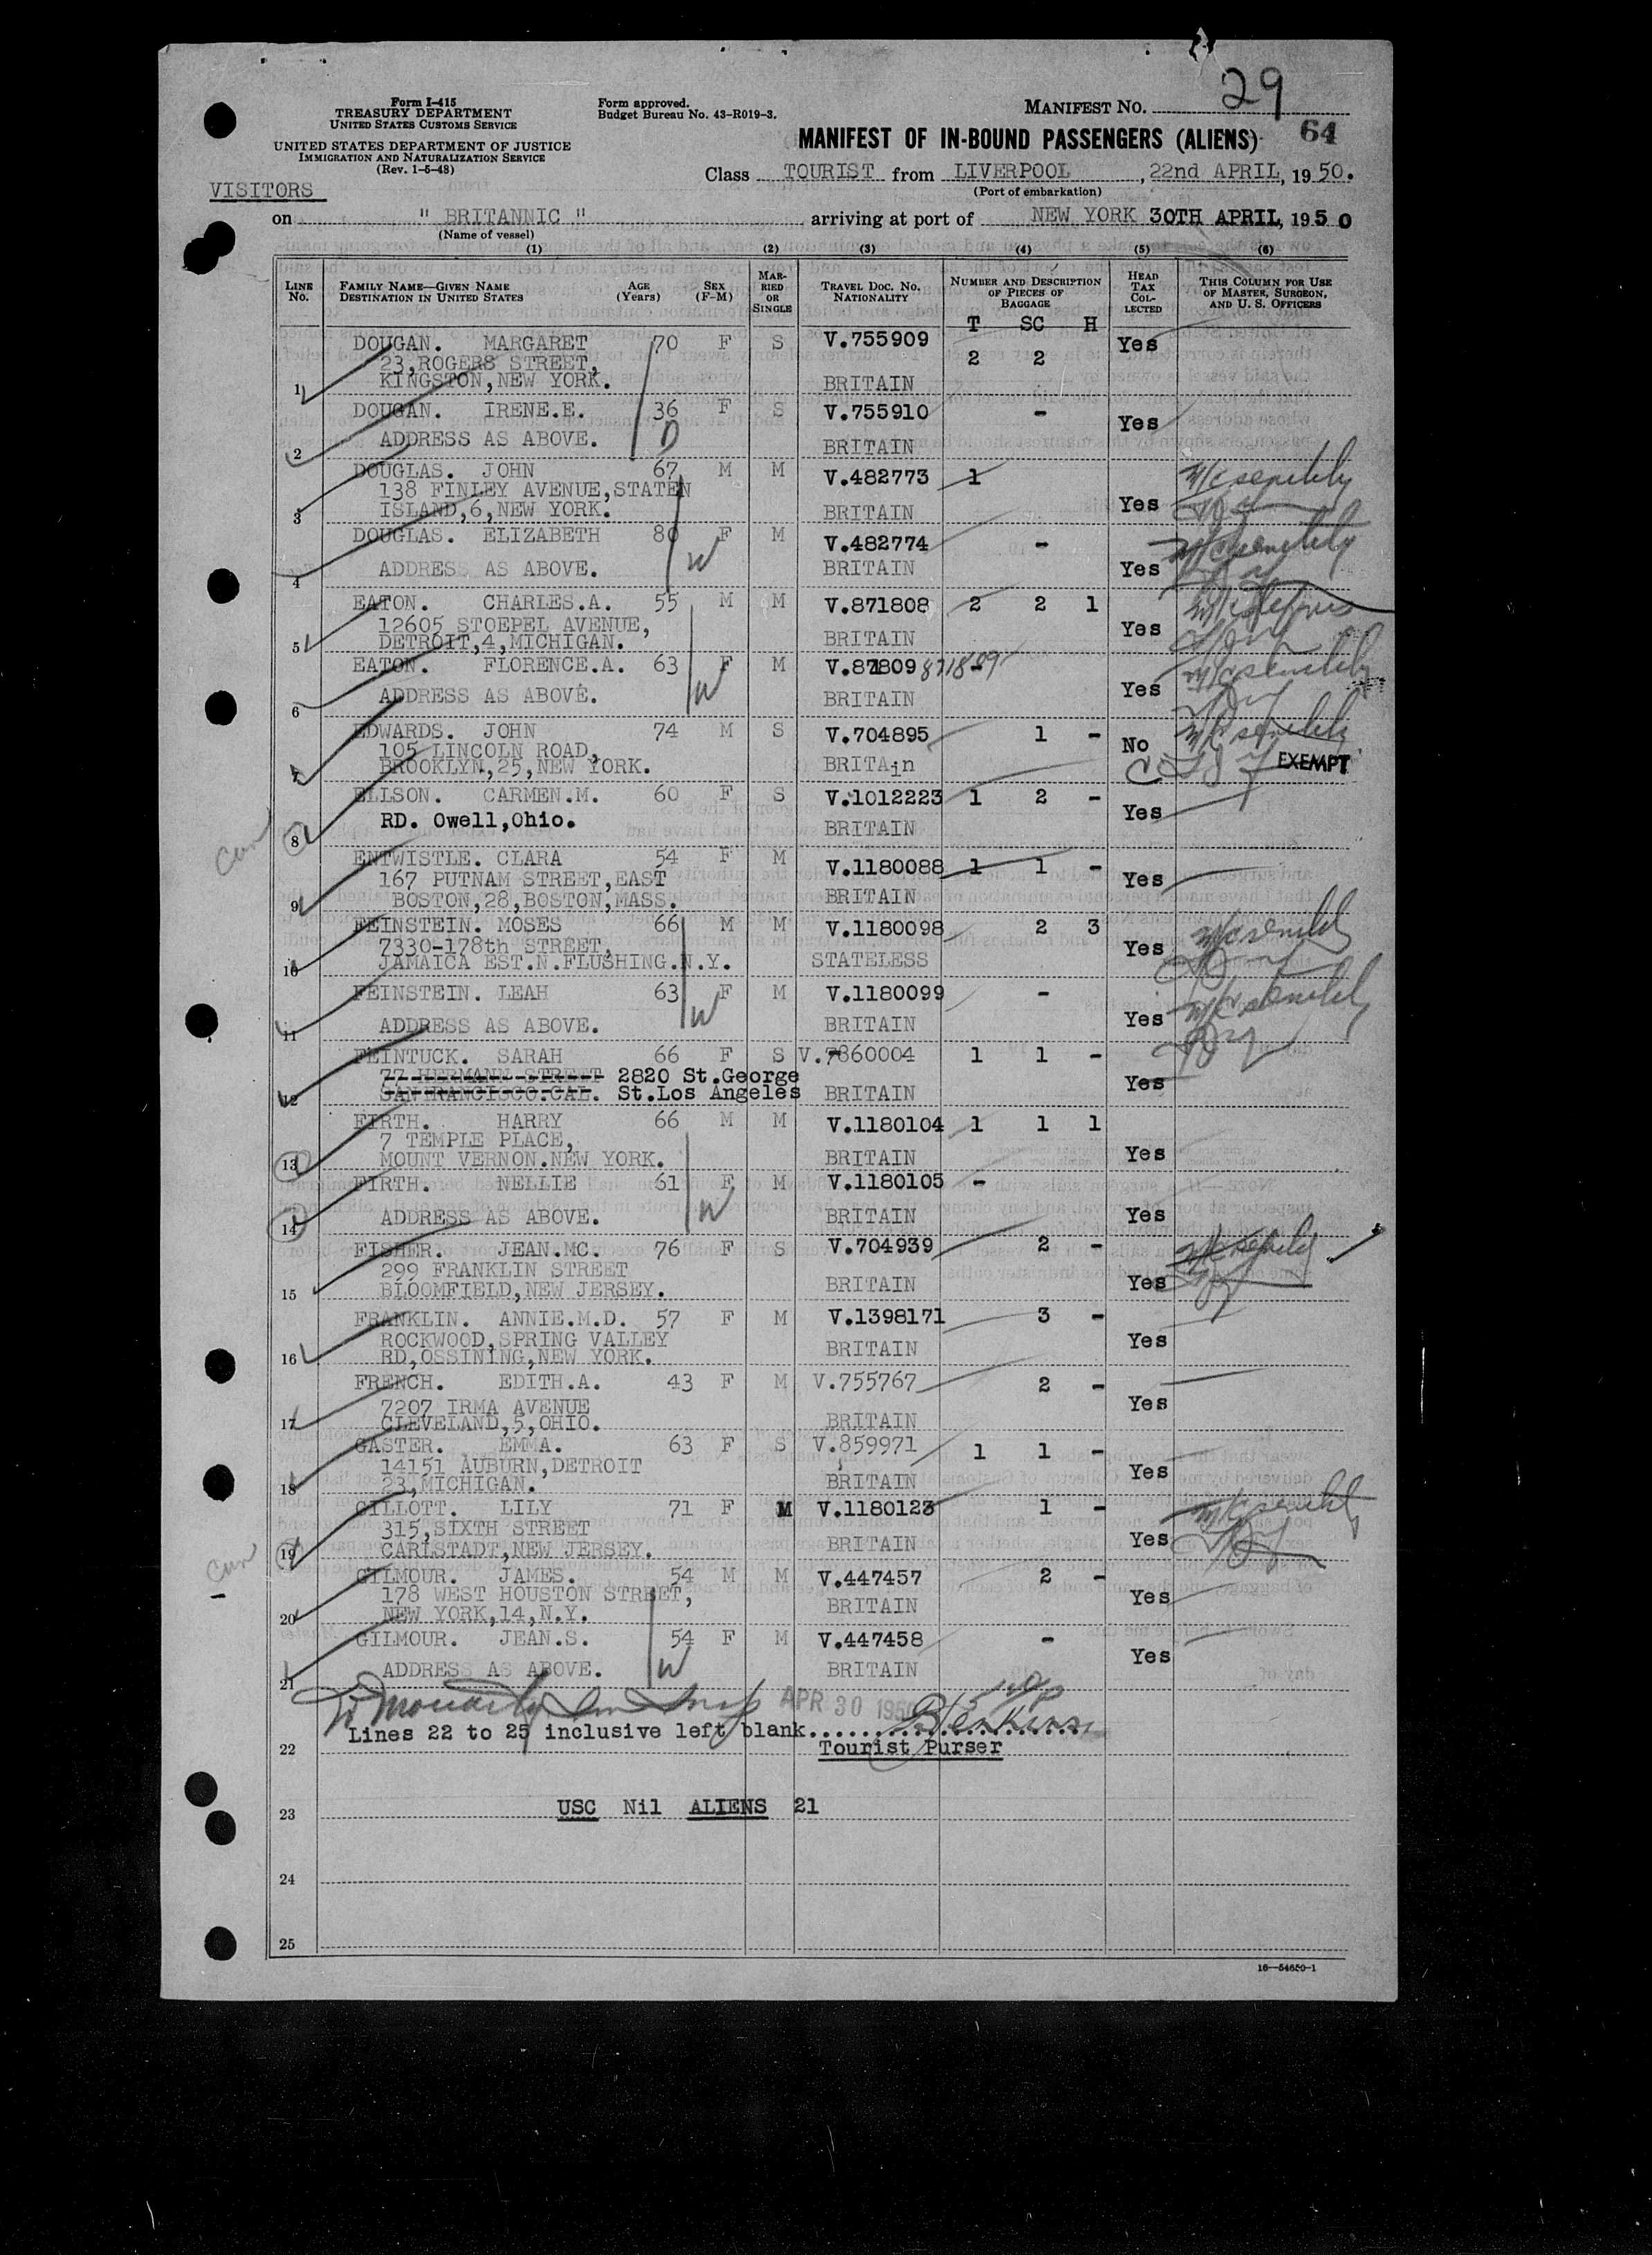 29
Form I-415
TREASURY DEPARTMENT
UNITED STATES CUSTOMS SERVICE
UNITED STATES DEPARTMENT OF JUSTICE
IMMIGRATION AND NATURALIZATION SERVICE
(Rev. 1-5-48)
Form approved.
Budget Bureau No. 43-R019-3.
MANIFEST NO.
MANIFEST OF IN-BOUND PASSENGERS (ALIENS) 64
Class TOURIST from LIVERPOOL, 22nd APRIL, 1950.
(Port of embarkation)
VISITORS
on " BRITANNIC " arriving at port of NEW YORK 30TH APRIL, 1950
(Name of vessel)
(1) (2) (3) (4) (5) (6)
LINE NO. FAMILY NAME—GIVEN NAME DESTINATION IN UNITED STATES AGE (Years) SEX (F-M) MARRIED OR SINGLE TRAVEL DOC. NO. NATIONALITY NUMBER AND DESCRIPTION OF PIECES OF BAGGAGE HEAD TAX COLLECTED THIS COLUMN FOR USE OF MASTER, SURGEON, AND U. S. OFFICERS
T SC H
DOUGAN. MARGARET 70 F S V.755909 2 2 Yes
23,ROGERS STREET,
1 KINGSTON,NEW YORK. BRITAIN
DOUGAN. IRENE.E. 36 F S V.755910 - Yes
2 ADDRESS AS ABOVE. D BRITAIN
DOUGLAS. JOHN 67 M M V.482773 1
138 FINLEY AVENUE,STATEN
3 ISLAND,6,NEW YORK. BRITAIN Yes
DOUGLAS. ELIZABETH 80 F M V.482774 -
4 ADDRESS AS ABOVE. W BRITAIN Yes
EATON. CHARLES.A. 55 M M V.871808 2 2 1
12605 STOEPEL AVENUE,
5 DETROIT,4,MICHIGAN. BRITAIN Yes
EATON. FLORENCE.A. 63 F M V.871809 871809 -
6 ADDRESS AS ABOVE. W BRITAIN Yes
EDWARDS. JOHN 74 M S V.704895 1 - No
105 LINCOLN ROAD,
7 BROOKLYN,25,NEW YORK. BRITAin EXEMPT
ELLSON. CARMEN.M. 60 F S V.1012223 1 2 - Yes
8 RD. Owell,Ohio. BRITAIN
ENTWISTLE. CLARA 54 F M V.1180088 1 1 - Yes
167 PUTNAM STREET,EAST
9 BOSTON,28,BOSTON,MASS. BRITAIN
FEINSTEIN. MOSES 66 M M V.1180098 2 3 Yes
7330-178th STREET,
10 JAMAICA EST.N.FLUSHING.N.Y. STATELESS
FEINSTEIN. LEAH 63 F M V.1180099 - Yes
11 ADDRESS AS ABOVE. W BRITAIN
FEINTUCK. SARAH 66 F S V.7860004 1 1 - Yes
77 HERMANN STREET 2820 St.George
12 SAN FRANCISCO.CAL. St.Los Angeles BRITAIN
FIRTH. HARRY 66 M M V.1180104 1 1 1
7 TEMPLE PLACE,
13 MOUNT VERNON.NEW YORK. BRITAIN Yes
FIRTH. NELLIE 61 F M V.1180105 -
14 ADDRESS AS ABOVE. W BRITAIN Yes
FISHER. JEAN.MC. 76 F S V.704939 2 -
299 FRANKLIN STREET
15 BLOOMFIELD,NEW JERSEY. BRITAIN Yes
FRANKLIN. ANNIE.M.D. 57 F M V.1398171 3 -
ROCKWOOD,SPRING VALLEY
16 RD,OSSINING,NEW YORK. BRITAIN Yes
FRENCH. EDITH.A. 43 F M V.755767 2 -
7207 IRMA AVENUE
17 CLEVELAND,5,OHIO. BRITAIN Yes
GASTER. EMMA. 63 F S V.859971 1 1 -
14151 AUBURN,DETROIT
18 23,MICHIGAN. BRITAIN Yes
GILLOTT. LILY 71 F M V.1180123 1 -
315,SIXTH STREET
19 CARLSTADT,NEW JERSEY. BRITAIN Yes
GILMOUR. JAMES. 54 M M V.447457 2 -
178 WEST HOUSTON STREET,
20 NEW YORK,14,N.Y. BRITAIN Yes
GILMOUR. JEAN.S. 54 F M V.447458 - Yes
21 ADDRESS AS ABOVE. W BRITAIN
APR 30 1950
Lines 22 to 25 inclusive left blank
22 Tourist Purser
23 USC Nil ALIENS 21
24
25
16—54650-1